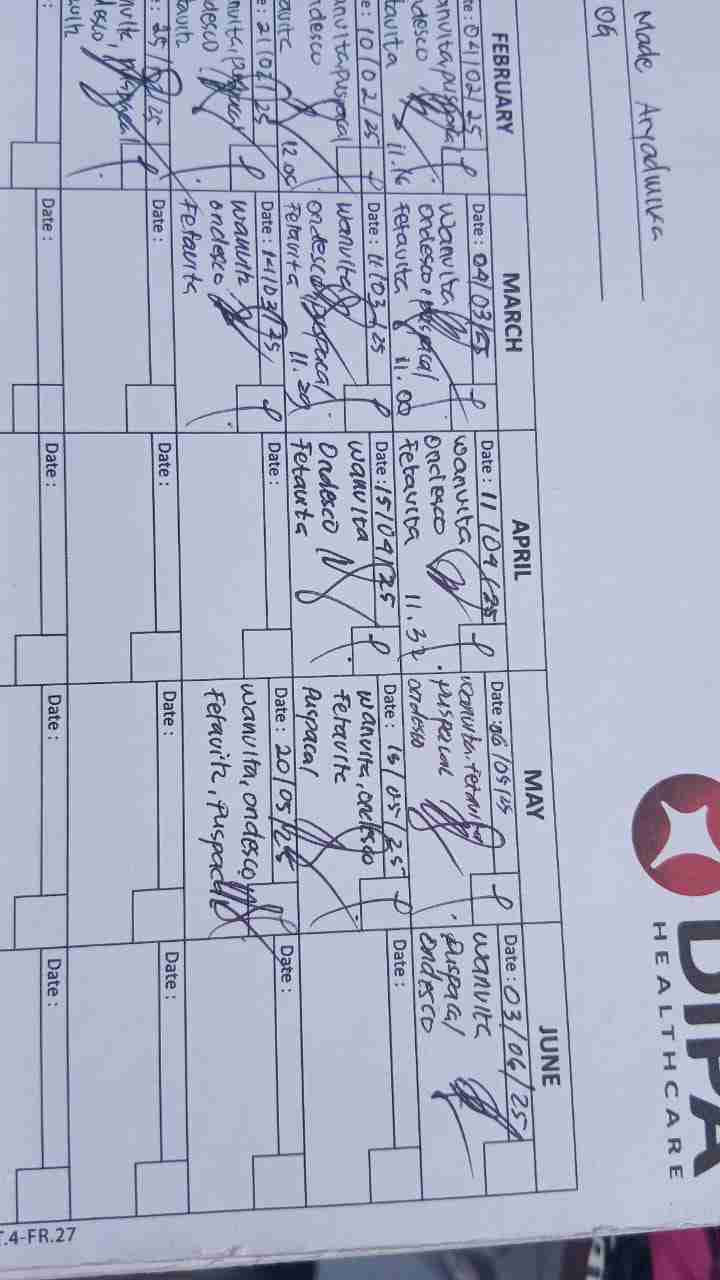 Made Aryadwika
09
DIPA
HEALTHCARE
FEBRUARY
MARCH
APRIL
MAY
JUNE
te: 04/02/25
desco
tavita
11.16
Date: 04/03/25
wanvita
ondesco, puspacal
fetavita
11.00
Date: 11/04/25
wanvita
Ondesco
Fetavita
11.32
Date: 06/05/25
wanvita, Fetavita
puspacal
ondesco
Date: 03/06/25
wanvita
puspacal
ondesco
e: 10/02/25
anvita, puspacal
ndesco
avita
12.05
Date: 11/03/25
wanvita
ondesco, puspacal
Fetavita
11.20
Date: 15/04/25
wanvita
Ondesco
Fetavita
Date: 15/05/25
wanvita, ondesco
Fetavita
puspacal
Date:
e: 21/02/25
anvita, puspacal
desco
avita
Date: 14/03/25
wanvita
ondesco
Fetavita
Date:
Date: 20/05/25
wanvita, ondesco
Fetavita, puspacal
Date:
e: 25/02/25
Date:
Date:
Date:
Date:
:
Date:
Date:
Date:
Date:
T.4-FR.27